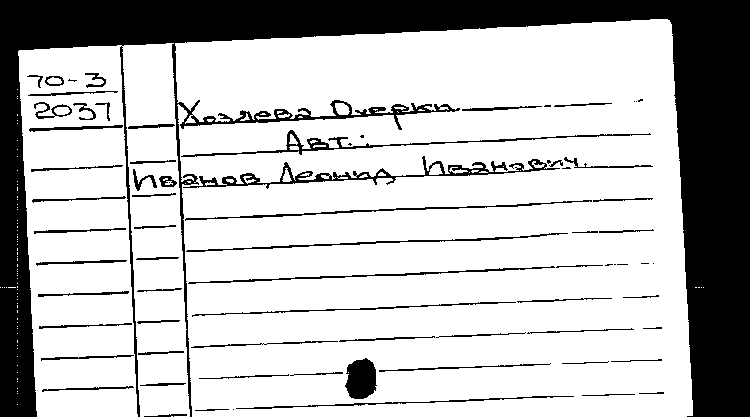 70-3
2037
Хозяева Очерки
Авт.:
Иванов, Леонид Иванович.